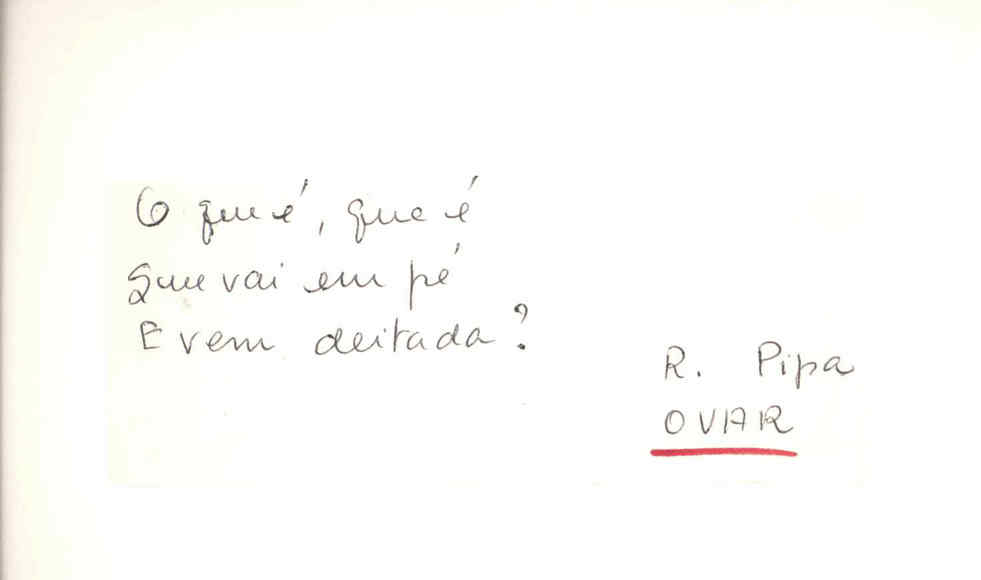 O que é, que é
Que vai em pé
E vem deitada?
R. Pipa
OVAR